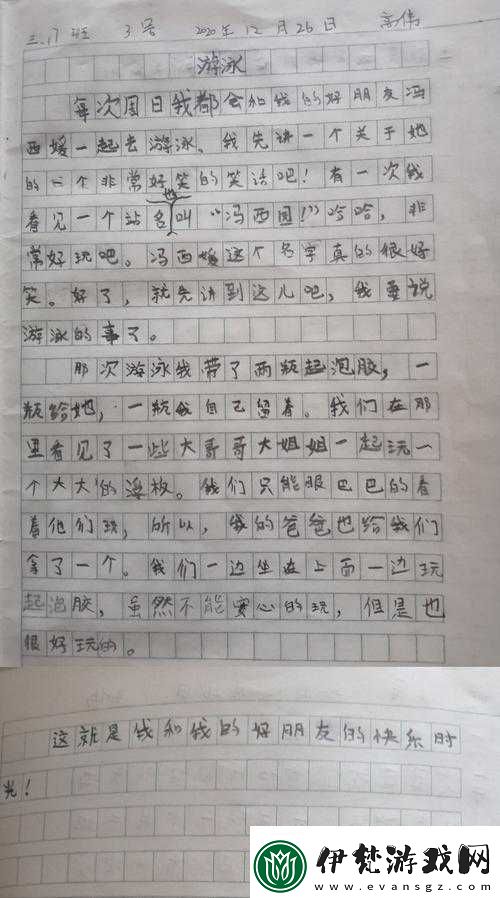 三.17班 3号 2020年12月26日 高伟
游泳
每次周日我都会和我的好朋友冯
西媛一起去游泳。我先讲一个关于她
的一个非常好笑的笑话吧！有一次我
看见一个站名叫“冯西园！”哈哈，非
常好玩吧。冯西媛这个名字真的很好
笑。好了，就先讲到这儿吧，我要说
游泳的事了。
那次游泳我带了两瓶起泡胶，一
瓶给她，一瓶我自己留着。我们在那
里看见了一些大哥哥大姐姐一起玩一
个大大的浮板。我们只能眼巴巴的看
着他们玩，所以，我的爸爸也给我们
拿了一个。我们一边坐在上面一边玩
起泡胶，虽然不能安心的玩，但是也
很好玩的。
这就是我和我的好朋友的快乐时
光！
伊梵游戏网
www.evansgz.com